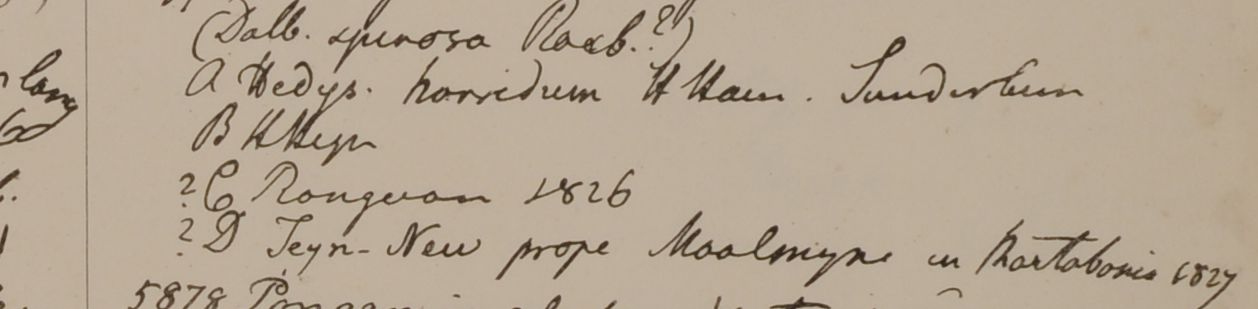 (Dalb. spinosa Roxb.?)
A Hedys. horridum H Ham. Sunderbun
B H Heyn
? C Rangoon 1826
? D Teyn-New prope Moalmyne in Martabania 1827
5878